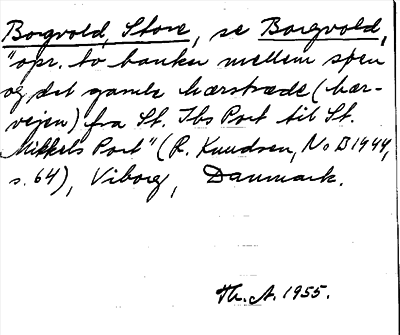 Borgvold, Store, se Borgvold,
"opr. to banker mellem søen
og det gamle hærstræde (hær-
vejen) fra St. Ibs Port til St.
Mikkels Port" (R. Knudsen, No B 1944,
s. 64), Viborg, Danmark.
Th. A. 1955.